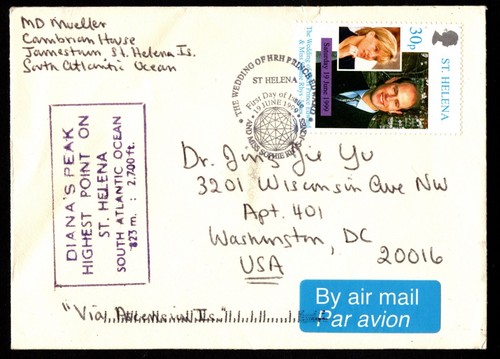 MD Mueller
Cambrian House
Jamestown St. Helena Is.
South Atlantic Ocean
THE WEDDING OF HRH PRINCE EDWARD
AND MISS SOPHIE RHYS-JONES
ST HELENA
First Day of Issue
15 JUNE 1999
The Wedding of
& Miss Sophie Rhys
Saturday 19 June 1999
30p
ST. HELENA
DIANA'S PEAK
HIGHEST POINT ON
ST. HELENA
SOUTH ATLANTIC OCEAN
823 m. : 2,700 ft.
Dr. Jie Yu
3201 Wisconsin Ave NW
Apt. 401
Washington, DC
20016
USA
"Via Ascension Is."
By air mail
Par avion